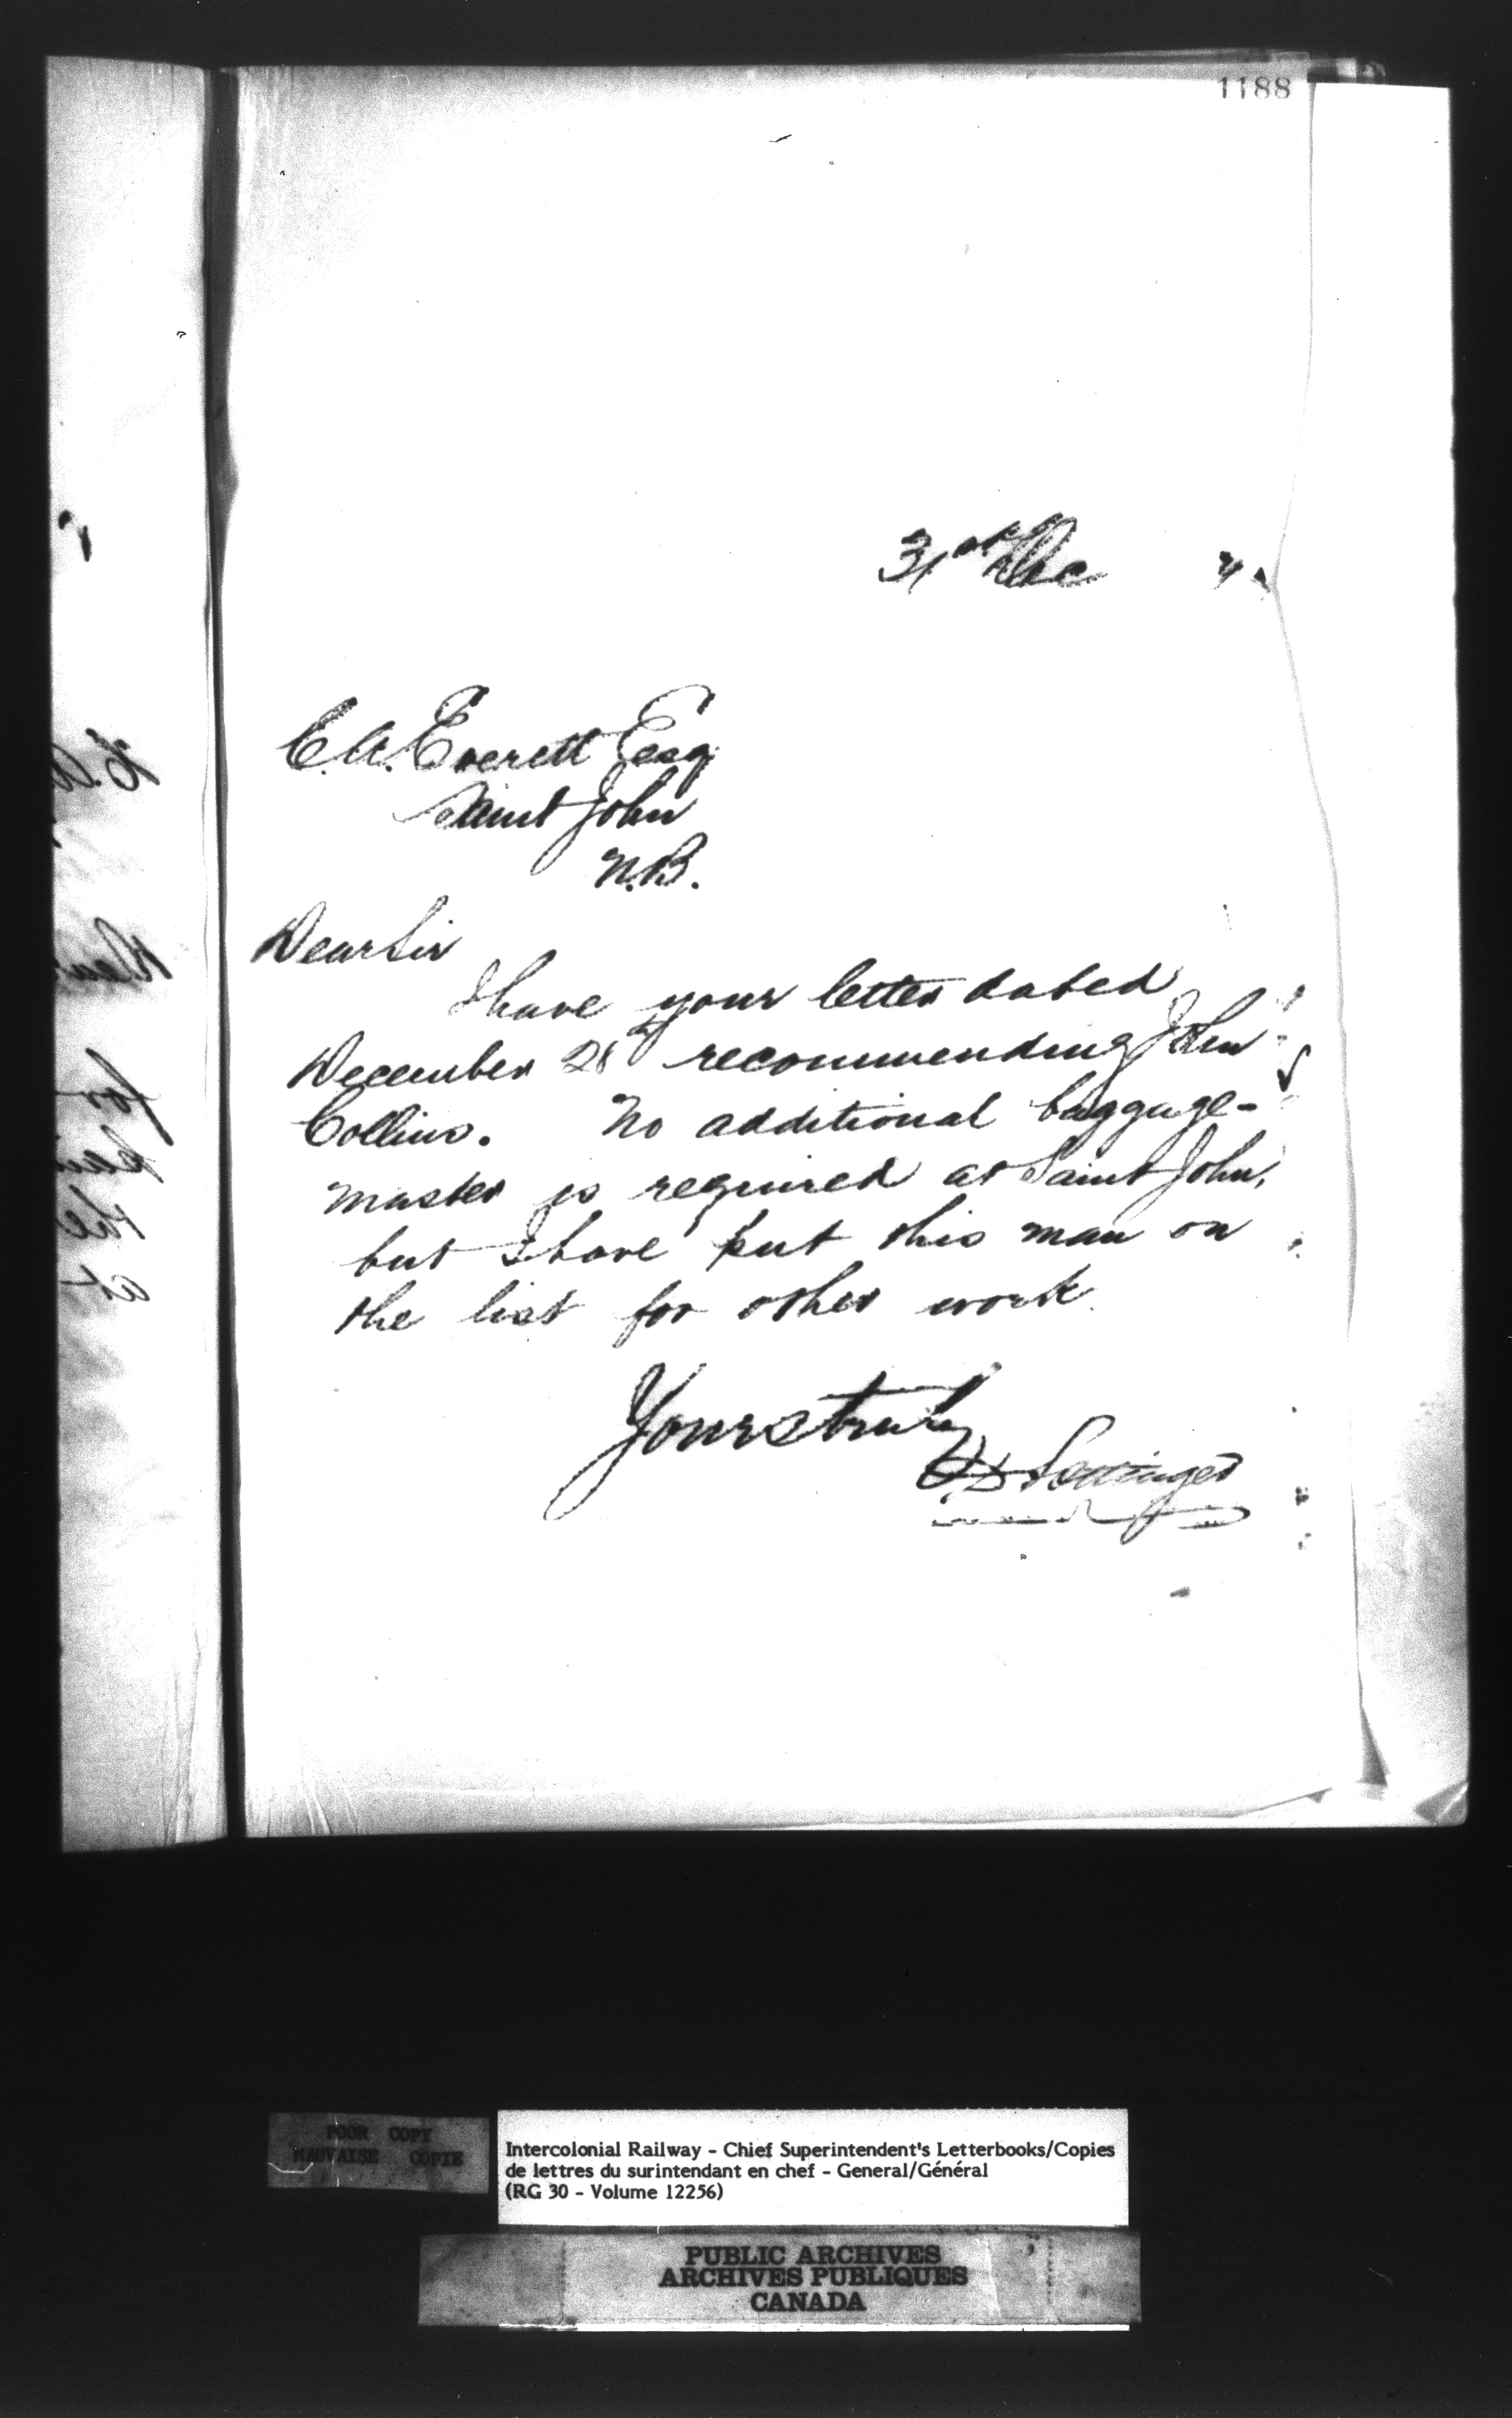 1188
31st Dec
C.A. Everett Esq
Saint John
N.B.
Dear Sir
I have your letter dated
December 28th recommending John
Collins. No additional baggage-
master is required at Saint John,
but I have put this man on
the list for other work.
Yours truly
D Pottinger
POOR COPY
MAUVAISE COPIE
Intercolonial Railway - Chief Superintendent's Letterbooks/Copies
de lettres du surintendant en chef - General/Général
(RG 30 - Volume 12256)
PUBLIC ARCHIVES
ARCHIVES PUBLIQUES
CANADA